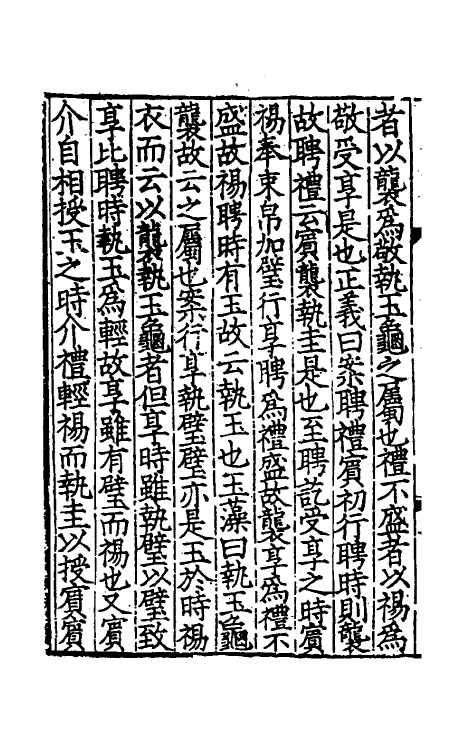 者以襲爲敬執玉龜之屬也禮不盛者以裼爲
敬受享是也正義曰案聘禮賓初行聘時則襲
故聘禮云賓襲執圭是也至聘訖受享之時賓
裼奉束帛加璧行享聘爲禮盛故襲享爲禮不
盛故裼聘時有玉故云執玉也玉藻曰執玉龜
襲故云之屬也案行享執璧璧亦是玉於時裼
衣而云以襲執玉龜者但享時雖執璧以璧致
享比聘時執玉爲輕故享雖有璧而裼也又賓
介自相授玉之時介禮輕裼而執圭以授賓賓